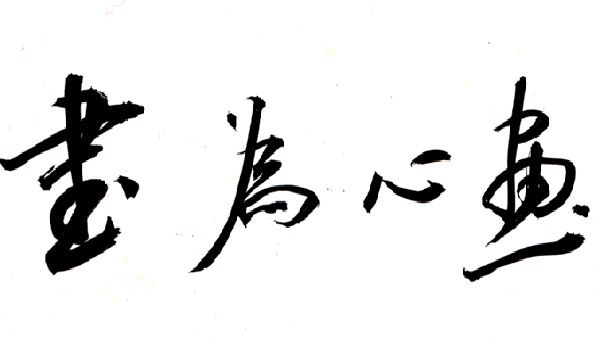 書為心畫